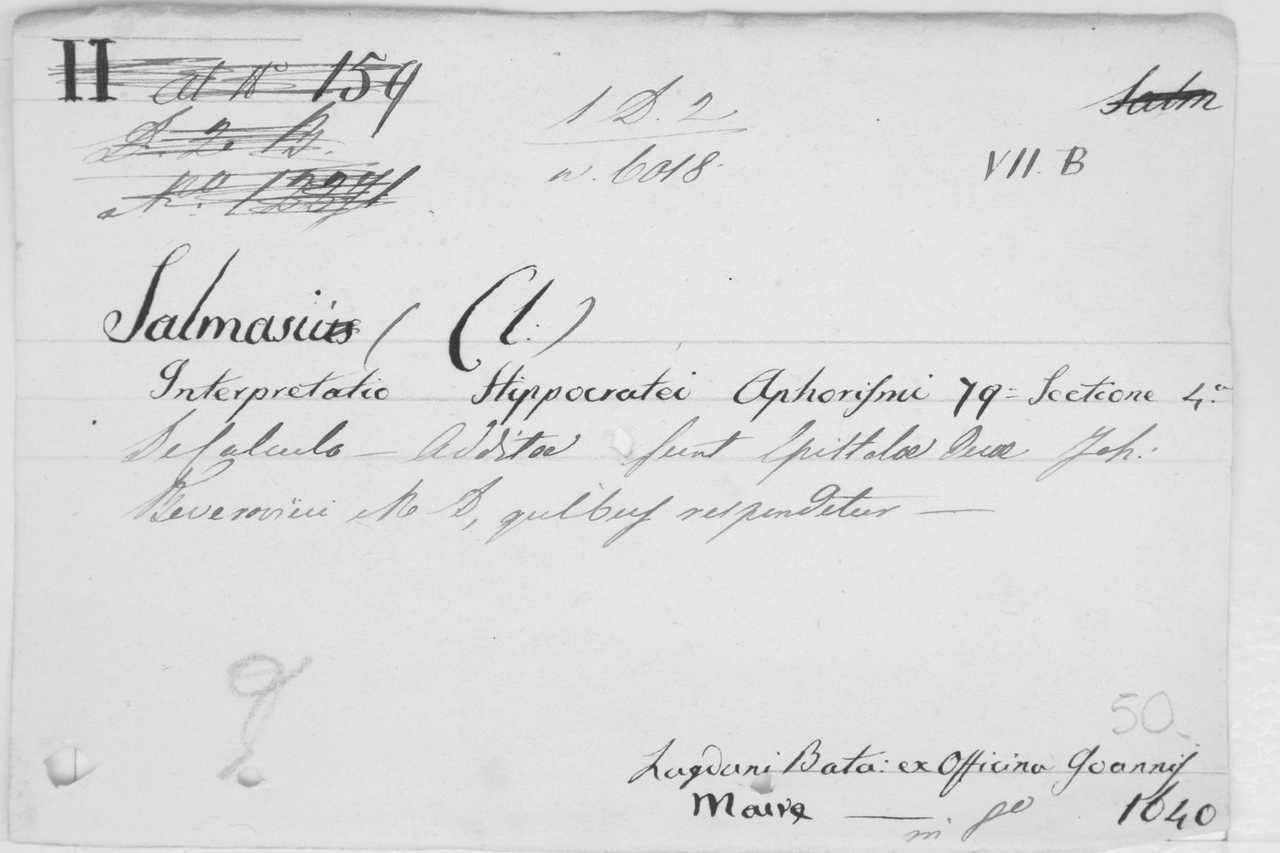 II at N° 159
D. 2. B.
N.º
1 D. 2
n. 6018.
Salm
VII. B
Salmasius ( Cl. )
Interpretatio Hippocratei Aphorismi 79 = Sectione 4.ª
De Calculo — Additæ sunt Epistolæ Duæ Joh:
Beverovicii M D, quibus respondetur —
50.
Lugduni Bata: ex Officina Joannis
Maire — in 8º 1640